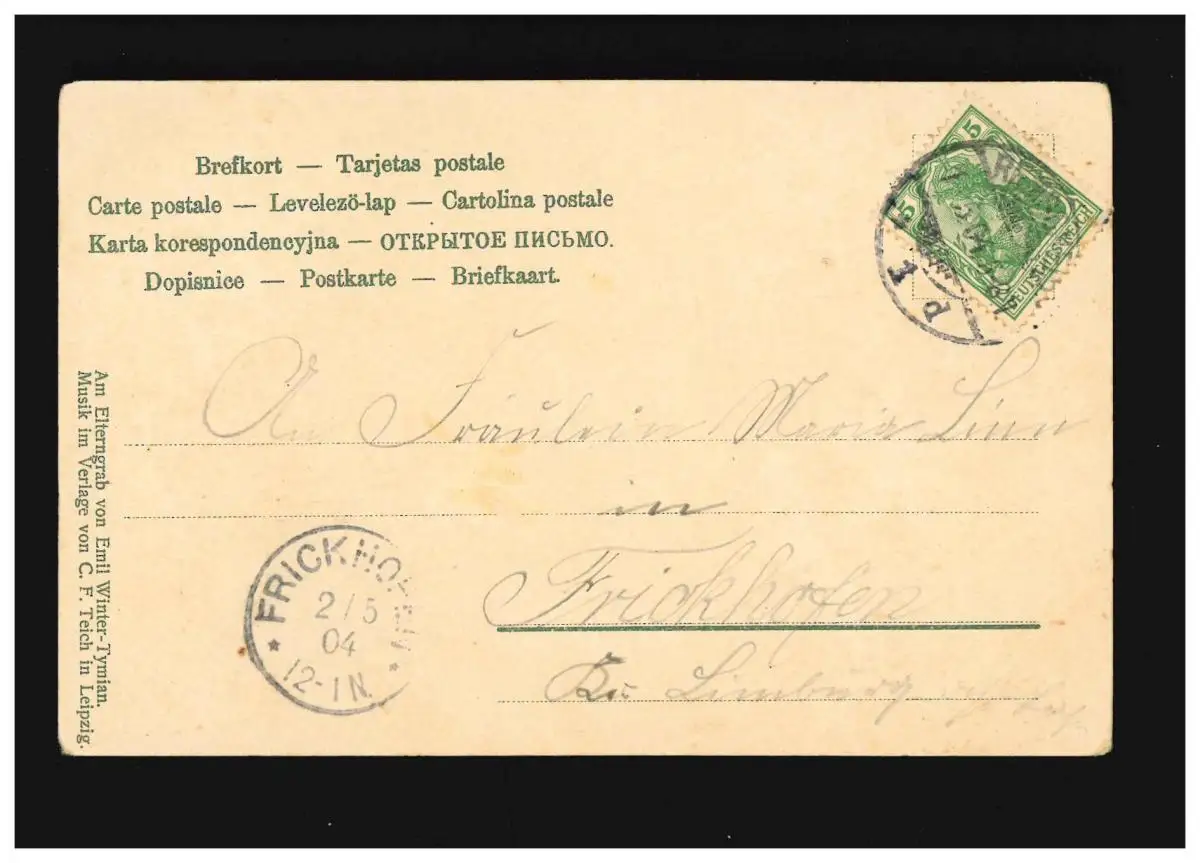 Brefkort — Tarjetas postale
Carte postale — Levelezö-lap — Cartolina postale
Karta korespondencyjna — ОТКРЫТОЕ ПИСЬМО.
Dopisnice — Postkarte — Briefkaart.
5
5
DEUTSCHES REICH
1 d
An Fräulein Maria Linn
in
Frickhofen
Kr. Limburg
FRICKHOFEN
2/5
04
12-1N.
Am Elterngrab von Emil Winter-Tymian.
Musik im Verlage von C. F. Teich in Leipzig.